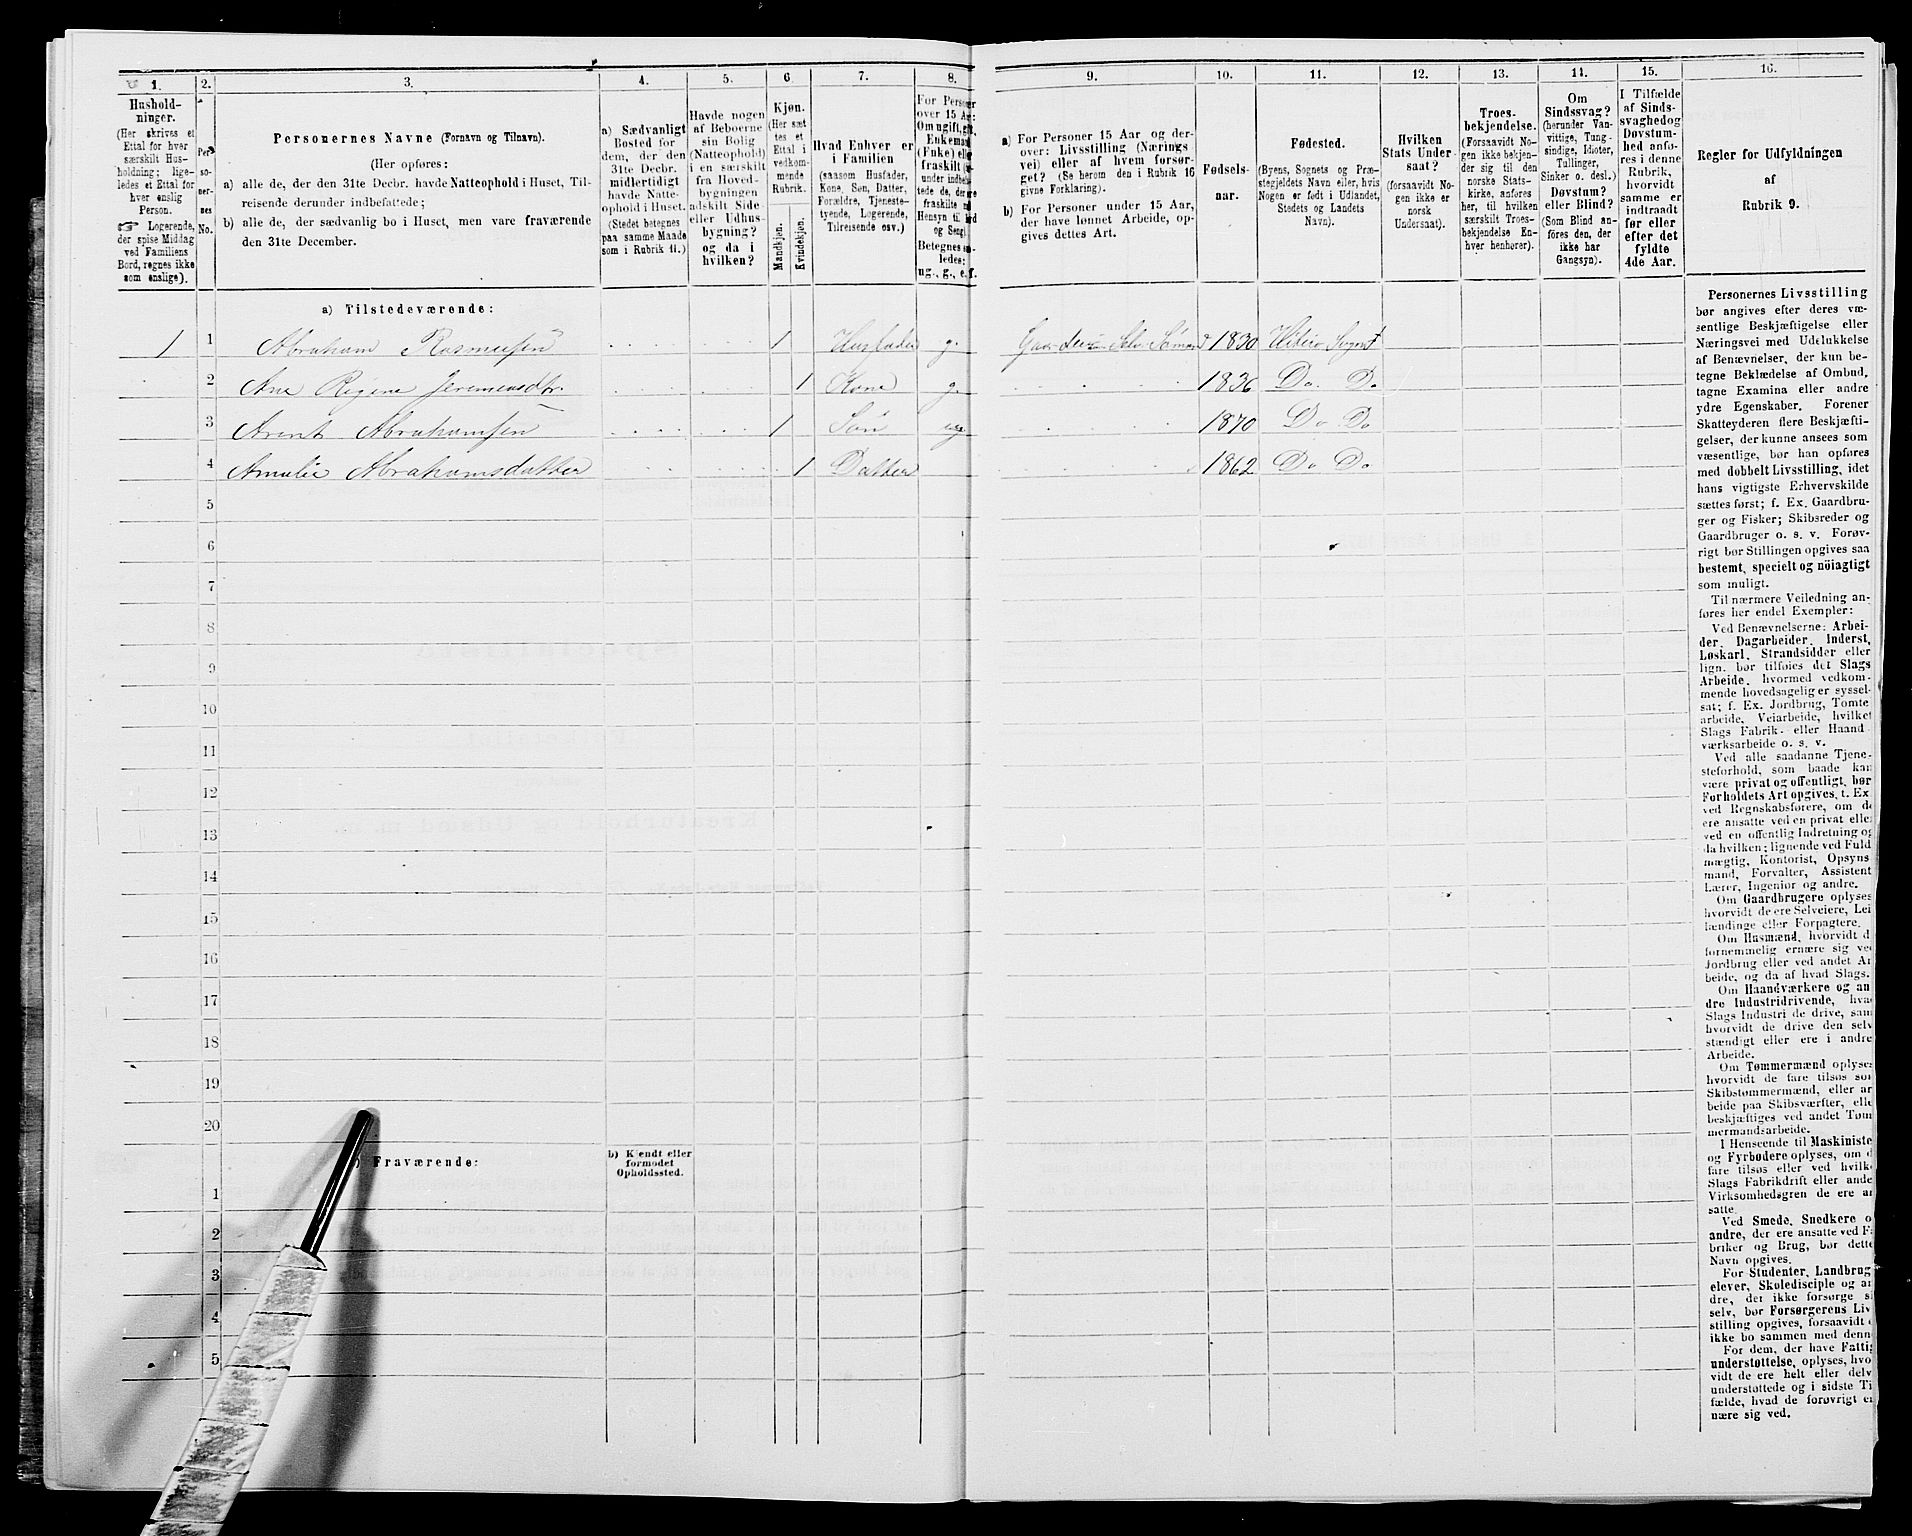 1.
Hushold-
ninger.
(Her skrives et
Ettal for hver
særskilt Hus-
holdning; lige-
ledes et Ettal for
hver enslig
Person.
☞ Logerende,
der spise Middag
ved Familiens
Bord, regnes ikke
som enslige).
2.
Per-
so-
ner-
nes
No.
3.
Personernes Navne (Fornavn og Tilnavn).
(Her opføres:
a) alle de, der den 31te Decbr. havde Natteophold i Huset, Til-
reisende derunder indbefattede;
b) alle de, der sædvanlig bo i Huset, men vare fraværende
den 31te December.
4.
a) Sædvanligt
Bosted for
dem, der den
31te Decbr.
midlertidigt
havde Natte-
ophold i Huset.
(Stedet betegnes
paa samme Maade
som i Rubrik 11.)
5.
Havde nogen
af Beboerne
sin Bolig
(Natteophold)
i en særskilt
fra Hoved-
bygningen
adskilt Side-
eller Udhus-
bygning?
og da i
hvilken?
6.
Kjøn.
(Her sæt-
tes et
Ettal i
vedkom-
mende
Rubrik.
Mandkjøn.
Kvindekjøn.
7.
Hvad Enhver er
i Familien
(saasom Husfader,
Kone, Søn, Datter,
Forældre, Tjeneste-
tyende, Logerende,
Tilreisende osv.)
8.
For Personer
over 15 Aar:
Om ugift, gift,
Enkemand
(Enke) eller
fraskilt
Betegnes saa-
ledes:
ug., g., e., f.
9.
a) For Personer 15 Aar og der-
over: Livsstilling (Nærings-
vei) eller af hvem forsør-
get? (Se herom den i Rubrik 16
givne Forklaring).
b) For Personer under 15 Aar,
der have lønnet Arbeide, op-
gives dettes Art.
10.
Fødsels-
aar.
11.
Fødested.
(Byens, Sognets og Præ-
stegjeldets Navn eller, hvis
Nogen er født i Udlandet,
Stedets og Landets
Navn).
12.
Hvilken
Stats Under-
saat?
(forsaavidt No-
gen ikke er
norsk
Undersaat).
13.
Troes-
bekjendelse.
(Forsaavidt No-
gen ikke bekjen-
der sig til den
norske Stats-
kirke, anføres
her, til hvilken
særskilt Troes-
bekjendelse En-
hver henhører).
14.
Om
Sindssvag?
(herunder Van-
vittige, Tung-
sindige, Idioter,
Tullinger,
Sinker o. desl.)
Døvstum?
eller Blind?
(Som Blind an-
føres den, der
ikke har
Gangsyn).
15.
I Tilfælde
af Sinds-
svaghed og
Døvstum-
hed anfø-
res i denne
Rubrik,
hvorvidt
samme er
indtraadt
før eller
efter det
fyldte
4de Aar.
16.
Regler for Udfyldningen
af
Rubrik 9.
a) Tilstedeværende:
1 1 Abraham Rasmussen 1 Husfader g. Gaardeier Selv Sømand 1830 Hiterø Sogn
2 Ane Regine Jeremensdtr. 1 Kone g. 1836 Do. Do
3 Arent Abrahamsen 1 Søn ug 1870 Do Do
4 Amalie Abrahamsdatter 1 Datter 1862 Do Do
5
6
7
8
9
10
11
12
13
14
15
16
17
18
19
20
Fraværende:
b) Kjendt eller
formodet
Opholdssted.
1
2
3
4
5
Personernes Livsstilling
bør angives efter deres væ-
sentlige Beskjæftigelse eller
Næringsvei med Udelukkelse
af Benævnelser, der kun be-
tegne Beklædelse af Ombud,
tagne Examina eller andre
ydre Egenskaber. Forener
Skatteyderen flere Beskjæfti-
gelser, der kunne ansees som
væsentlige, bør han opføres
med dobbelt Livsstilling, idet
hans vigtigste Erhvervskilde
sættes først; f. Ex. Gaardbru-
ger og Fisker; Skibsreder og
Gaardbruger o. s. v. Forøv-
rigt bør Stillingen opgives saa
bestemt, specielt og nöiagtigt
som muligt.
Til nærmere Veiledning an-
føres her endel Exempler:
Ved Benævnelserne: Arbei-
der, Dagarbeider, Inderst,
Løskarl, Strandsidder eller
lign. bør tilføies det Slags
Arbeide, hvormed vedkom-
mende hovedsagelig er syssel-
sat; f. Ex. Jordbrug, Tomte-
arbeide, Veiarbeide, hvilket
Slags Fabrik- eller Haand-
værksarbeide o. s. v.
Ved alle saadanne Tjene-
steforhold, som baade kan
være privat og offentligt, bør
Forholdets Art opgives, f. Ex.
ved Regnskabsførere, om de
ere ansatte ved en privat elle
ved en offentlig Indretning og
da hvilken; lignende ved Fuld
mægtig, Kontorist, Opsyns
mand, Forvalter, Assistent
Lærer, Ingeniør og andre.
Om Gaardbrugere oplyses
hvorvidt de ere Selveiere, Lei
lændinge eller Forpagtere.
Om Husmænd, hvorvidt d
fornemmelig ernære sig ve
Jordbrug eller ved andet Ar
beide, og da af hvad Slags.
Om Haandværkere og an
dre Industridrivende, hva
Slags Industri de drive, sam
hvorvidt de drive den selv
stændigt eller ere i andre
Arbeide.
Om Tømmermænd oplyses
hvorvidt de fare tilsøs som
Skibstømmermænd, eller ar
beide paa Skibsværfter, elle
beskjæftiges ved andet Tøm
mermandsarbeide.
I Henseende til Maskiniste
og Fyrbødere oplyses, om d
fare tilsøs eller ved hvilke
Slags Fabrikdrift eller ande
Virksomhedsgren de ere an
satte.
Ved Smede, Snedkere o
andre, der ere ansatte ved Fa
briker og Brug, bør dette
Navn opgives.
For Studenter, Landbrug
elever, Skoledisciple og an
dre, der ikke forsørge si
selv, bør Forsørgerens Liv
stilling opgives, forsaavidt
ikke bo sammen med denn
For dem, der have Fattig
understøttelse, oplyses, hvo
vidt de ere helt eller delv
understøttede og i sidste Ti
fælde, hvad de forøvrigt e
nære sig ved.